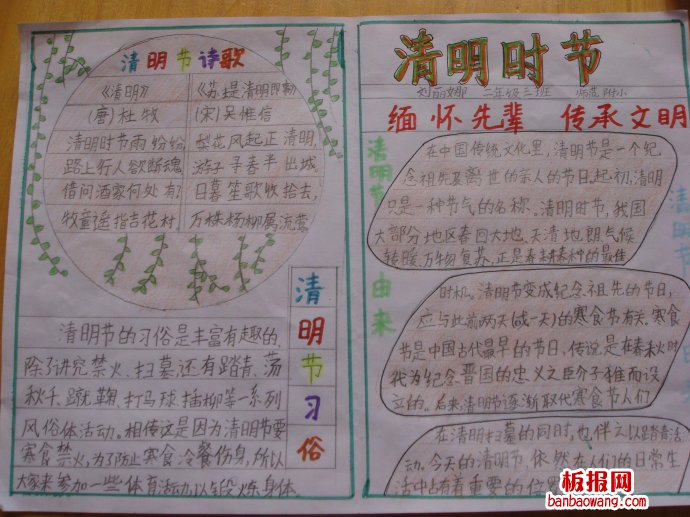 清明节诗歌
《清明》
(唐)杜牧
清明时节雨纷纷
路上行人欲断魂
借问酒家何处有
牧童遥指杏花村
《苏堤清明即事》
(宋)吴惟信
梨花风起正清明,
游子寻春半出城
日暮笙歌收拾去,
万株杨柳属流莺
清明节习俗
清明节的习俗是丰富有趣的,
除了讲究禁火、扫墓,还有踏青、荡
秋千、蹴鞠、打马球、插柳等一系列
风俗体活动。相传这是因为清明节要
寒食禁火,为了防止寒食冷餐伤身,所以
大家来参加一些体育活动,以锻炼身体
清明时节
二年级三班 师范附小
缅怀先辈 传承文明
清明节
由来
在中国传统文化里,清明节是一个纪
念祖先及离世的亲人的节日。起初,清明
只是一种节气的名称。清明时节,我国
大部分地区春回大地、天清地朗,气候
转暖,万物复苏,正是春耕春种的最佳
时机。清明节变成纪念祖先的节日,
应与此前两天(或一天)的寒食节有关。寒食
节是中国古代最早的节日,传说是在春秋时
代为纪念晋国的忠义之臣介子推而设
立的。后来,清明节逐渐取代寒食节。人们
在清明扫墓的同时,也伴之以踏青活
动。今天的清明节,依然在人们的日常生
活中占有着重要的位置
板报网
banbaowang.com